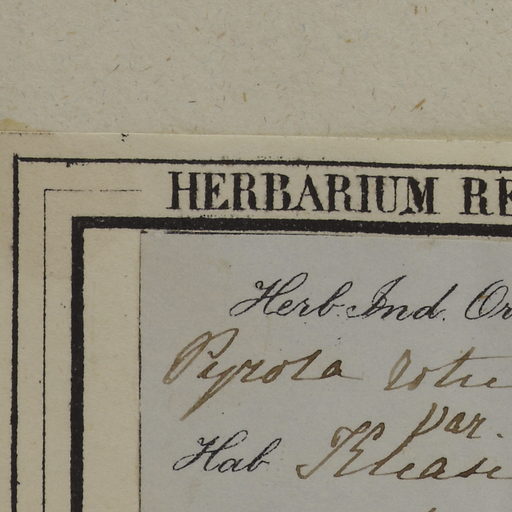 HERBARIUM RE
Herb. Ind. Or
Pyrola rotu
var.
Hab Khasi